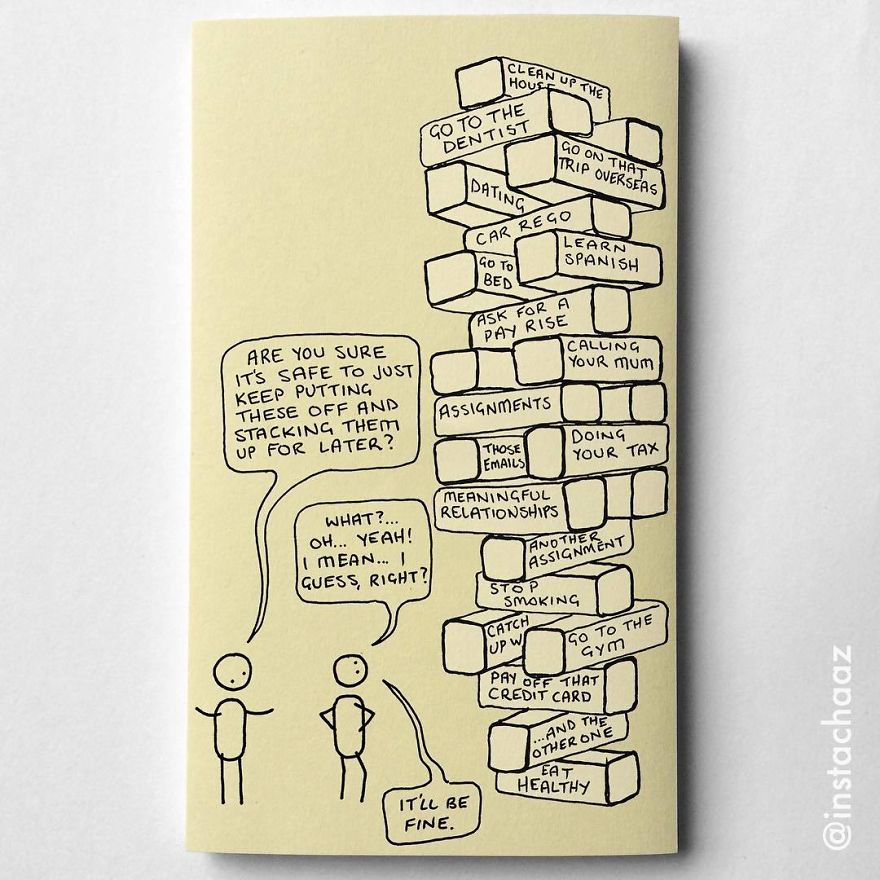 CLEAN UP THE
HOUSE
GO TO THE
DENTIST
GO ON THAT
TRIP OVERSEAS
DATING
CAR REGO
LEARN
SPANISH
GO TO
BED
ASK FOR A
PAY RISE
CALLING
YOUR MUM
ASSIGNMENTS
THOSE
EMAILS
DOING
YOUR TAX
MEANINGFUL
RELATIONSHIPS
ANOTHER
ASSIGNMENT
STOP
SMOKING
CATCH
UP W
GO TO THE
GYM
PAY OFF THAT
CREDIT CARD
...AND THE
OTHER ONE
EAT
HEALTHY
ARE YOU SURE
IT'S SAFE TO JUST
KEEP PUTTING
THESE OFF AND
STACKING THEM
UP FOR LATER?
WHAT?...
OH... YEAH!
I MEAN... I
GUESS, RIGHT?
IT'LL BE
FINE.
@instachaaz